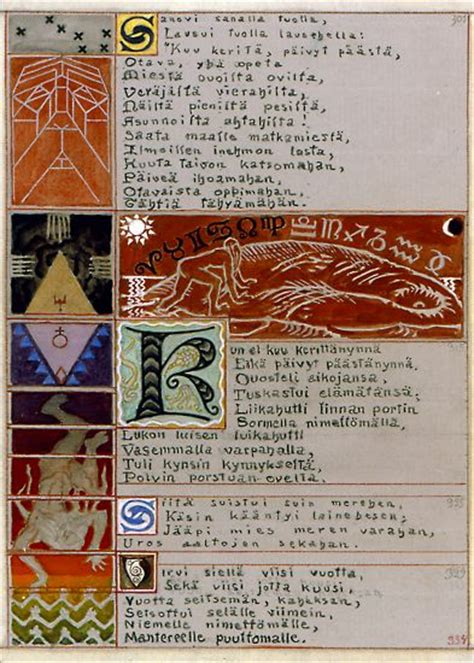 Sanovi sanalla tuolla, 305
Lausui tuolla lausehella:
"Kuu keritä, päivyt päästä,
Otava, yhä opeta
Miestä ouoilta ovilta,
Veräjiltä vierahilta,
Näiltä pieniltä pesiltä,
Asunnoilta ahtahilta!
Saata maalle matkamiestä,
Ilmoillen inehmon lasta,
Kuuta taivon katsomahan,
Päiveä ihoamahan,
Otavaista oppimahan,
Tähtiä tähyämähän.
♈♉♊♋♌♍♎♏♐♑♒♓
Kun ei kuu kerittänynnä
Eikä päivyt päästänynnä,
Ouosteli aikojansa,
Tuskastui elämätänsä;
Liikahutti linnan portin
Sormella nimettömällä,
Lukon luisen luikahutti
Vasemmalla varpahalla,
Tuli kynsin kynnykseltä,
Polvin porstuan ovelta.
Siitä suistui suin merehen,
Käsin kääntyi lainehesen;
Jääpi mies meren varahan,
Uros aaltojen sekahan.
Virui siellä viisi vuotta, 329
Sekä viisi jotta kuusi,
Vuotta seitsemän, kaheksan,
Seisottui selälle viimein,
Niemelle nimettömälle,
Mantereelle puuttomalle. 334